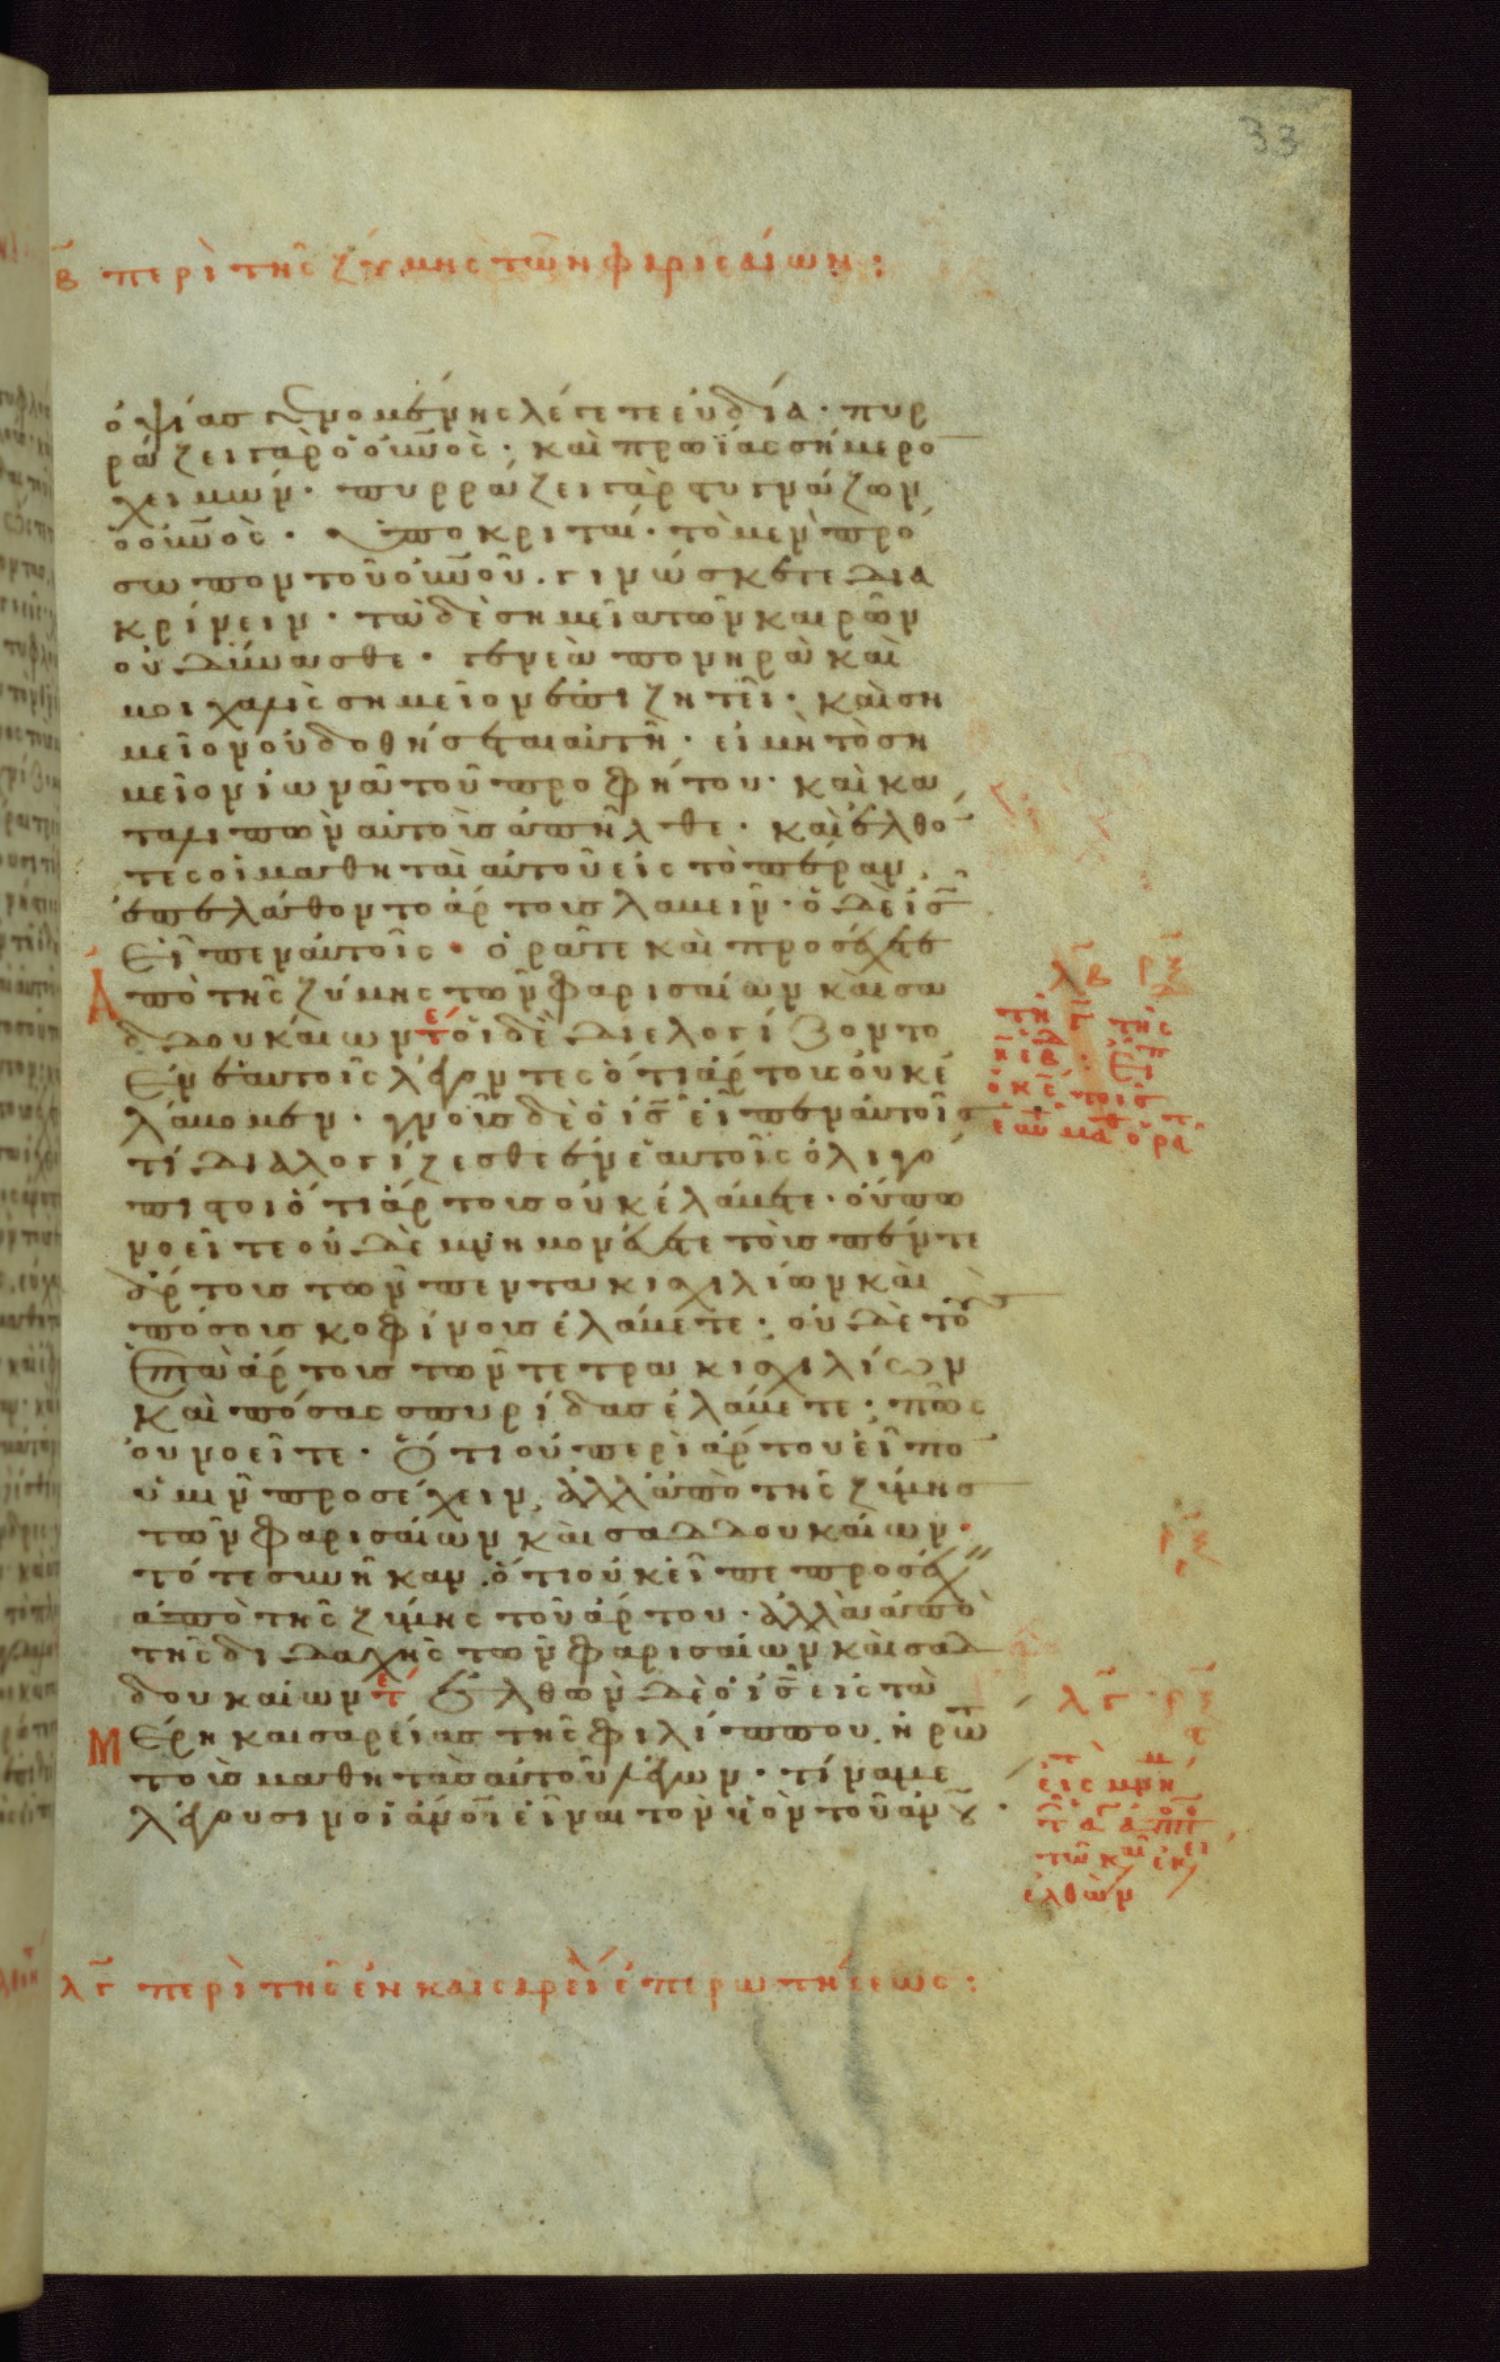 33
β περὶ τῆς ζύμης τῶν φαρισαίων :
ὀψίας γενομένης λέγετε εὐδία · πυρ
ράζει γὰρ ὁ οὐνος · καὶ πρωΐας σήμερο
χειμών · πυρράζει γὰρ στυγνάζων
ὁ οὐνος · ὑποκριταί · τὸ μὲν πρό
σωπον τοῦ οὐνοῦ · γινώσκετε δια
κρίνειν · τὰ δὲ σημεῖα τῶν καιρῶν
οὐ δύνασθε · γενεὰ πονηρὰ καὶ
μοιχαλὶς σημεῖον ἐπιζητεῖ · καὶ ση
μεῖον οὐ δοθήσεται αὐτῇ · εἰ μὴ τὸ ση
μεῖον ἰωνᾶ τοῦ προφήτου · καὶ κα
ταλιπὼν αὐτοὺς ἀπῆλθε · καὶ ἐλθό
τες οἱ μαθηταὶ αὐτοῦ εἰς τὸ πέραν
ἐπελάθοντο ἄρτους λαβεῖν · ὁ δὲ ις
εἶπεν αὐτοῖς · ὁρᾶτε καὶ προσέχετε
ἀπὸ τῆς ζύμης τῶν φαρισαίων καὶ σα
δδουκαίων τε οἱ δὲ διελογίζοντο
ἐν ἑαυτοῖς λέγοντες ὅτι ἄρτους οὐκ ἐ
λάβομεν · γνοὺς δὲ ὁ ις εἶπεν αὐτοῖς
τί διαλογίζεσθε ἐν ἑαυτοῖς ὀλιγό
πιστοι ὅτι ἄρτους οὐκ ἐλάβετε · οὔπω
νοεῖτε οὐδὲ μνημονεύετε τοὺς πέντε
ἄρτους τῶν πεντακισχιλίων καὶ
πόσους κοφίνους ἐλάβετε · οὐδὲ τοὺς
ἑπτὰ ἄρτους τῶν τετρακισχιλίων
καὶ πόσας σπυρίδας ἐλάβετε · πῶς
οὐ νοεῖτε · ὅτι οὐ περὶ ἄρτου εἶπο
ὑμῖν προσέχειν ἀλλ' ἀπὸ τῆς ζύμης
τῶν φαρισαίων καὶ σαδδουκαίων ·
τότε συνῆκαν ὅτι οὐκ εἶπε προσέχ
ἀπὸ τῆς ζύμης τοῦ ἄρτου · ἀλλὰ ἀπὸ
τῆς διδαχῆς τῶν φαρισαίων καὶ σαδ
δουκαίων τε ἐλθὼν δὲ ὁ ις εἰς τὰ
μέρη καισαρείας τῆς φιλίππου ἠρώτ
τοὺς μαθητὰς αὐτοῦ λέγων · τίνα με
λέγουσιν οἱ ἀνοι εἶναι τὸν υἱὸν τοῦ ἀνου ·
λβ ρξ
ρξ
λγ ρξ
ἐλθὼν
λγ περὶ τῆς ἐν καισαρείᾳ ἐπερωτήσεως :